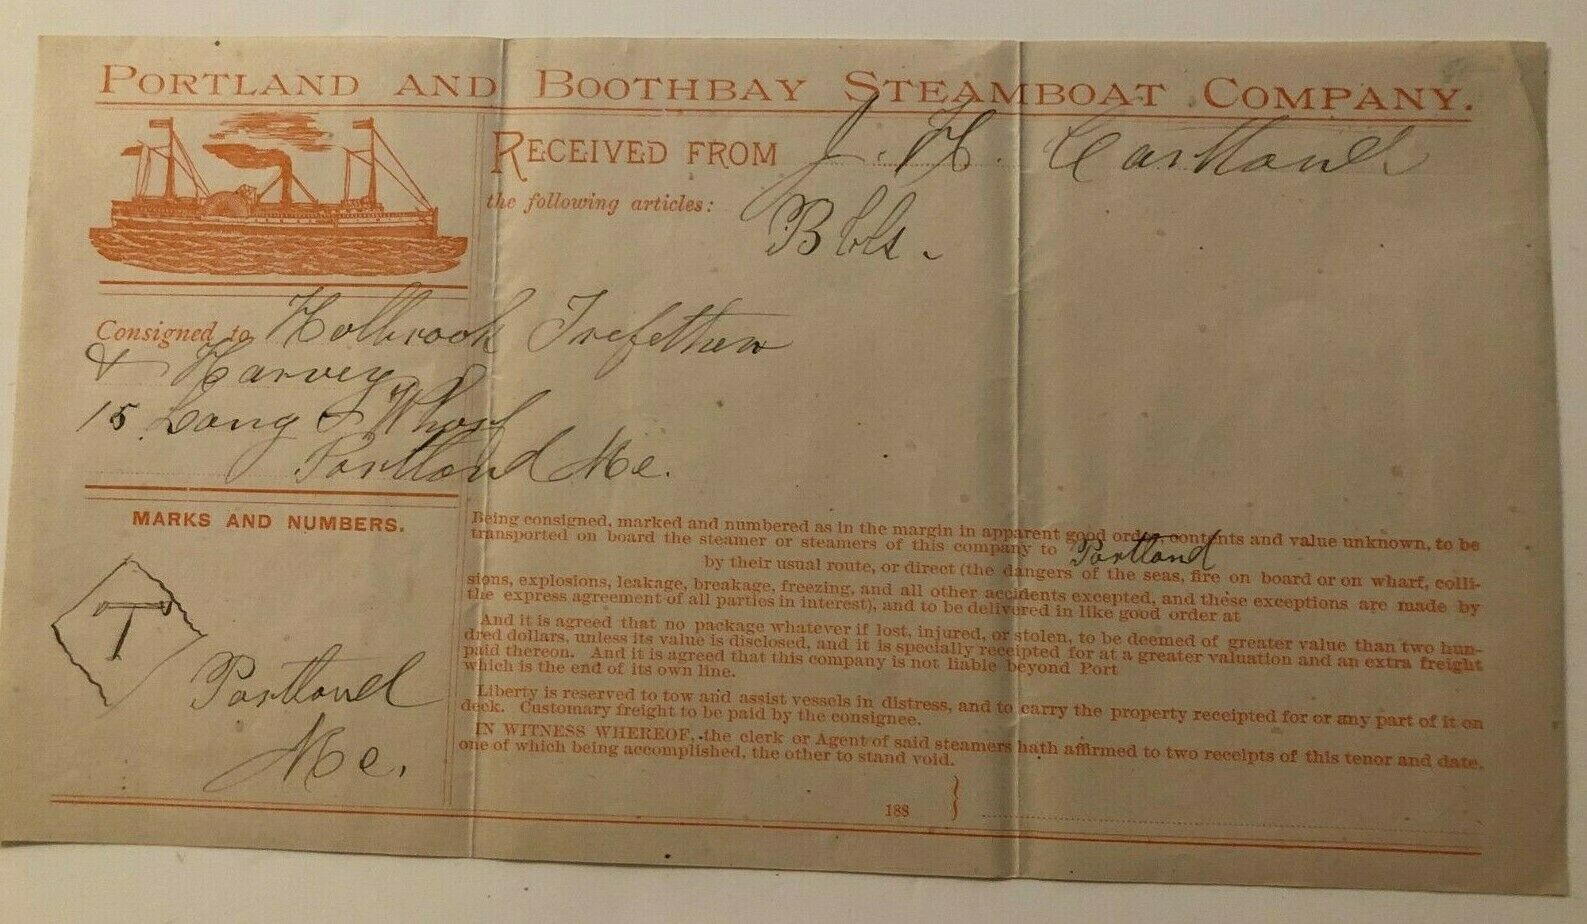 PORTLAND AND BOOTHBAY STEAMBOAT COMPANY.
RECEIVED FROM J. H. Cartland
the following articles:
Bbls.
Consigned to Holbrook Trefethen
& Harvey
15 Long & Wharf
Portland Me.
MARKS AND NUMBERS.
T
Portland
Me.
Being consigned, marked and numbered as in the margin in apparent good order, contents and value unknown, to be
transported on board the steamer or steamers of this company to Portland
by their usual route, or direct (the dangers of the seas, fire on board or on wharf, colli-
sions, explosions, leakage, breakage, freezing, and all other accidents excepted, and these exceptions are made by
the express agreement of all parties in interest), and to be delivered in like good order at
And it is agreed that no package whatever if lost, injured, or stolen, to be deemed of greater value than two hun-
dred dollars, unless its value is disclosed, and it is specially receipted for at a greater valuation and an extra freight
paid thereon. And it is agreed that this company is not liable beyond Port
which is the end of its own line.
Liberty is reserved to tow and assist vessels in distress, and to carry the property receipted for or any part of it on
deck. Customary freight to be paid by the consignee.
IN WITNESS WHEREOF, the clerk or Agent of said steamers hath affirmed to two receipts of this tenor and date,
one of which being accomplished, the other to stand void.
188 }